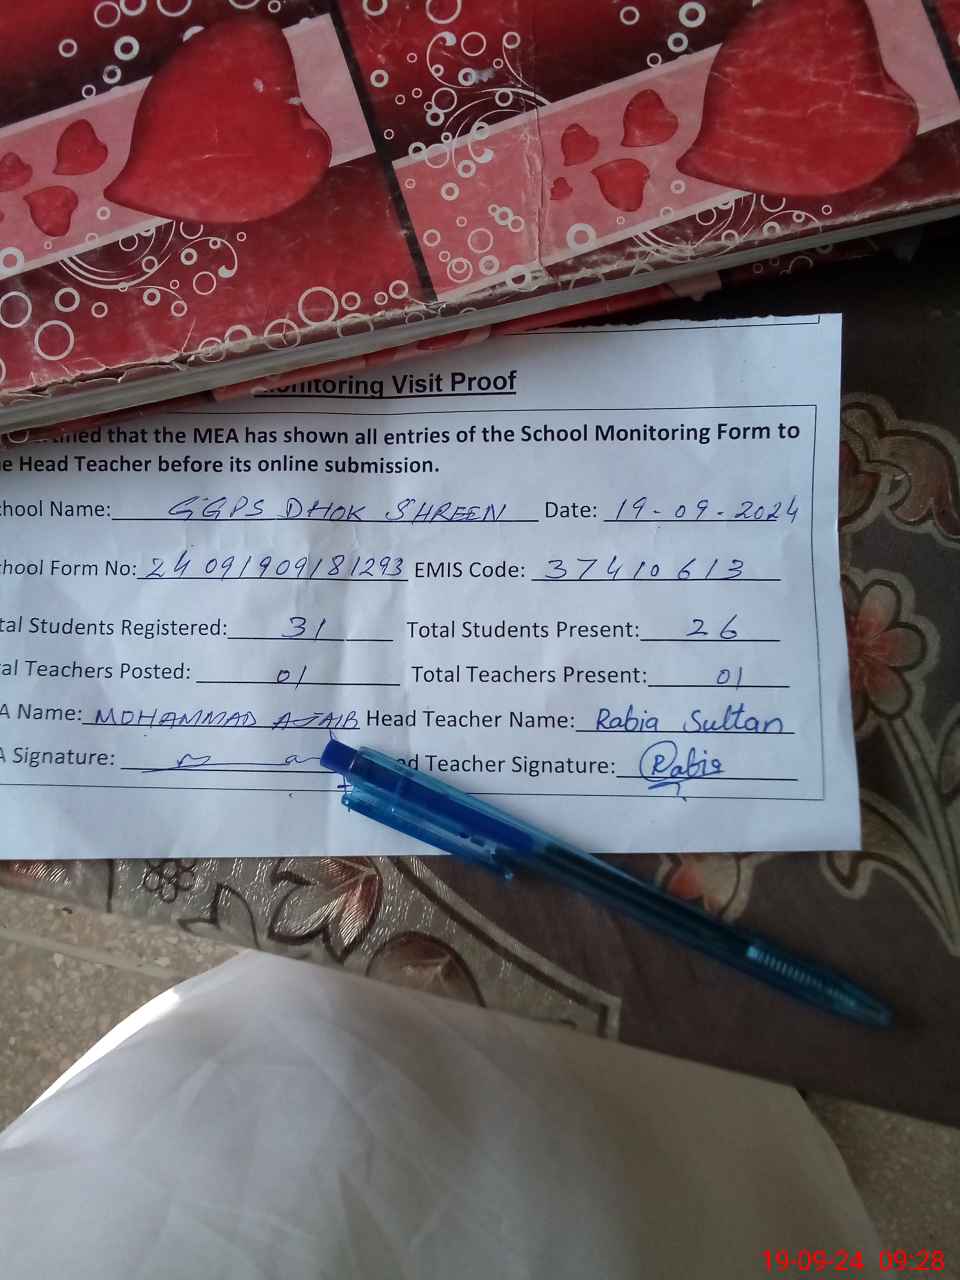 Monitoring Visit Proof
that the MEA has shown all entries of the School Monitoring Form to
Head Teacher before its online submission.
School Name: GGPS DHOK SHREEN Date: 19-09-2024
School Form No: 24091909181293 EMIS Code: 37410613
Total Students Registered: 31 Total Students Present: 26
Total Teachers Posted: 01 Total Teachers Present: 01
A Name: MOHAMMAD AJAIB Head Teacher Name: Rabia Sultan
A Signature: Head Teacher Signature: Rabia
19-09-24 09:28